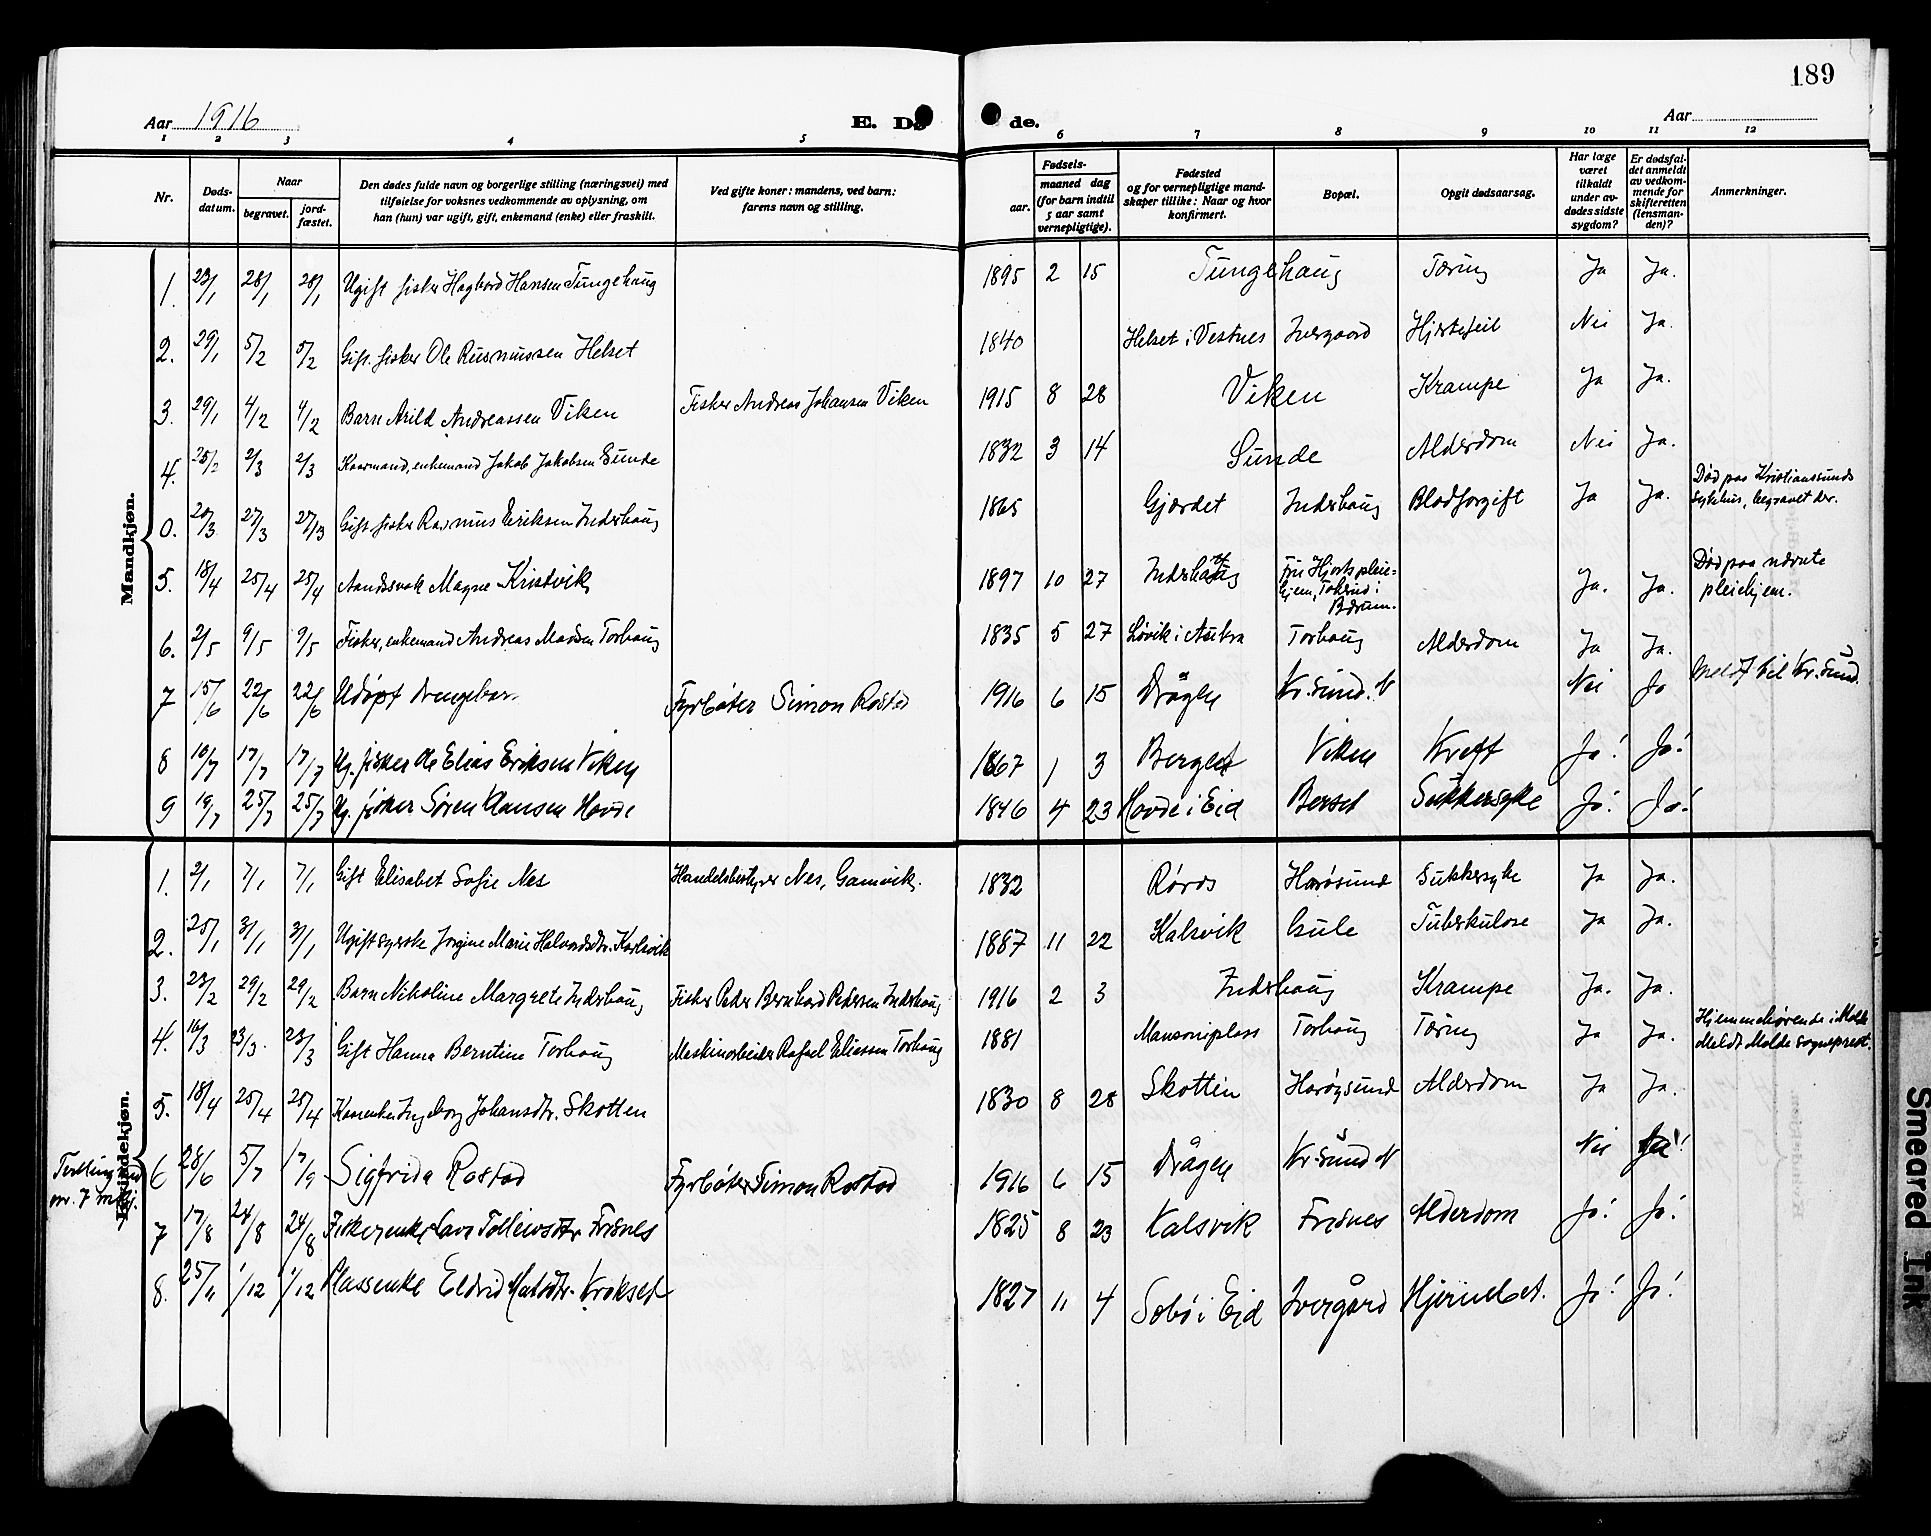 189
Aar 1916 E. Dø de. Aar
1 2 3 4 5 6 7 8 9 10 11 12
Nr. Døds-datum. Naar begravet. jord-fæstet. Den dødes fulde navn og borgerlige stilling (næringsvei) med tilføielse for voksnes vedkommende av oplysning, om han (hun) var ugift, gift, enkemand (enke) eller fraskilt. Ved gifte koner: mandens, ved barn: farens navn og stilling. Fødsels- aar. maaned dag (for barn indtil 5 aar samt vernepligtige). Fødested og for vernepligtige mand-skaper tillike: Naar og hvor konfirmert. Bopæl. Opgit dødsaarsag. Har læge været tilkaldt under av-dødes sidste sygdom? Er dødsfal-det anmeldt av vedkom-mende for skifteretten (lensman-den)? Anmerkninger.
Mandkjøn.
1. 23/1 28/1 28/1 Ugift fisker Hagbard Hansen Tungehaug 1895 2 15 Tungehaug Tæring Ja Ja.
2. 29/1 5/2 5/2 Gift fisker Ole Rasmussen Helset 1840 Helset i Vestnes Ivergaard Hjertefeil Nei Ja.
3. 29/1 4/2 4/2 Barn Arild Andreassen Viken Fisker Andreas Johansen Viken 1915 8 28 Viken Krampe Ja Ja.
4. 25/2 2/3 2/3 Kaarmand, enkemand Jakob Jakobsen Sunde 1832 3 14 Sunde Alderdom Nei Ja.
0. 20/3 27/3 27/3 Gift fisker Rasmus Eriksen Inderhaug 1865 Gjærdet Inderhaug Blodforgift Ja Ja. Død paa Kristianssunds sykehus, begravet der.
5. 18/4 25/4 25/4 Aandssvak Magne Kristvik 1897 10 27 Inderhaug Fru Hjorts pleie-hjem, Tokerud i Bærum. Ja. Ja. Død paa nævnte pleiehjem.
6. 2/5 9/5 9/5 Fisker, enkemand Andreas Madsen Torhaug 1835 5 27 Løvik i Aukra Torhaug Alderdom Ja Ja.
7 15/6 22/6 22/6 Udøpt drengebar. Fyrbøter Simon Rostad 1916 6 15 Drågen Kr.sund. N Nei Ja Meldt til Kr.sund.
8 10/7 17/7 17/7 Ug. fisker Ole Elias Eriksen Viken 1867 1 3 Berget Viken Kreft Ja! Ja!
9 19/7 25/7 25/7 Ug. fisker Søren Hansen Hovde 1846 4 23 Hovde i Eid Berset Sukkersyke Ja! Ja!
Kvindekjøn.
1. 2/1 7/1 7/1 Gift Elisabet Sofie Nes Handelsbestyrer Nes, Gamvik. 1832 Røros Harøsund Sukkersyke Ja Ja.
2. 25/1 31/1 31/1 Ugift syerske Jørgine Marie Halvardsdtr. Karlsvik 1887 11 22 Kalsvik Gule Tuberkulose Ja Ja.
3. 23/2 29/2 29/2 Barn Nikoline Margrete Inderhaug Fisker Peder Bernhard Pedersen Inderhaug 1916 2 3 Inderhaug Krampe Ja. Ja.
4. 16/3 23/3. 23/3 Gift Hanna Berntine Torhaug Maskinarbeider Rafael Eliassen Torhaug 1881 Torhaug Tæring Ja Ja. Hjemmehørende i Molde Meldt Molde sogneprest.
5. 18/4 25/4 25/4 Kaarenke Ingeborg Johansdtr. Skotten 1830 8 28 Skotten Harøysund Alderdom Ja Ja.
Tvilling med nr. 7 mkj. 6 28/6 5/7 17/9 Sigfrida Rostad Fyrbøter Simon Rostad 1916 6 15 Drågen Kr.sund N Nei Ja!
7 17/8 24/8 24/8 Fiskerenke Lava Tollevsdtr Frisnes 1825 8 23 Kalsvik Frisnes Alderdom Ja! Ja!
8. 25/11 1/12 1/12 Plassenke Eldrid Matsdtr. Krokset 1827 11 4 Sobø i Eid Ivergård Hjernebet. Ja! Ja!
Smeared Ink